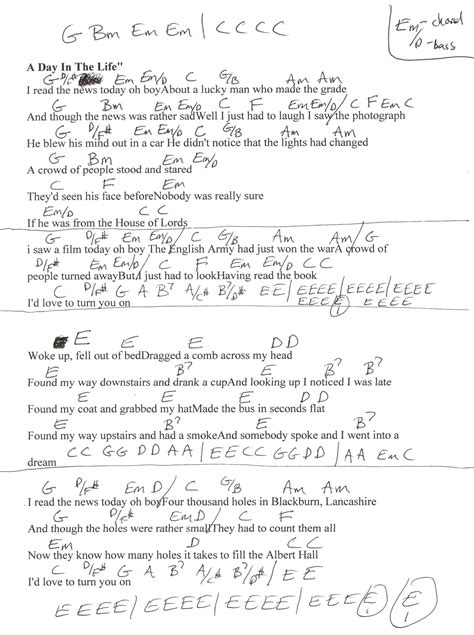 G Bm Em Em | C C C C
Em - chord
/D - bass
A Day In The Life"
G D/F# Em Em/D C G/B Am Am
I read the news today oh boyAbout a lucky man who made the grade
G Bm Em Em/D C F Em Em/D / C F Em C
And though the news was rather sadWell I just had to laugh I saw the photograph
G D/F# Em Em/D C G/B Am Am
He blew his mind out in a car He didn't notice that the lights had changed
G Bm Em Em/D
A crowd of people stood and stared
C F Em
They'd seen his face beforeNobody was really sure
Em/D C C
If he was from the House of Lords
G D/F# Em Em/D / C G/B Am Am/G
i saw a film today oh boy The English Army had just won the warA crowd of
D/F# Em Em/D / C F Em Em/D CC
people turned awayButA just had to lookHaving read the book
C D/F# G A B7 A/C# B7/D# EE | EEEE | EEEE | EEEE
I'd love to turn you on
EEEE | EEEE
1
E E DD
Woke up, fell out of bedDragged a comb across my head
E B7 E B7
Found my way downstairs and drank a cupAnd looking up I noticed I was late
E E D D
Found my coat and grabbed my hatMade the bus in seconds flat
E B7 E B7
Found my way upstairs and had a smokeAnd somebody spoke and I went into a
CC GG DD AA | EE CC GG DD | AA Em C
dream
G D/F# Em D / C G/B Am Am
I read the news today oh boyFour thousand holes in Blackburn, Lancashire
G D/F# Em D / C F
And though the holes were rather smallThey had to count them all
Em D CC
Now they know how many holes it takes to fill the Albert Hall
C D/F# G A B7 A/C# B7/D# | EE
I'd love to turn you on
EEEE | EEEE | EEEE | EEEE | E
1